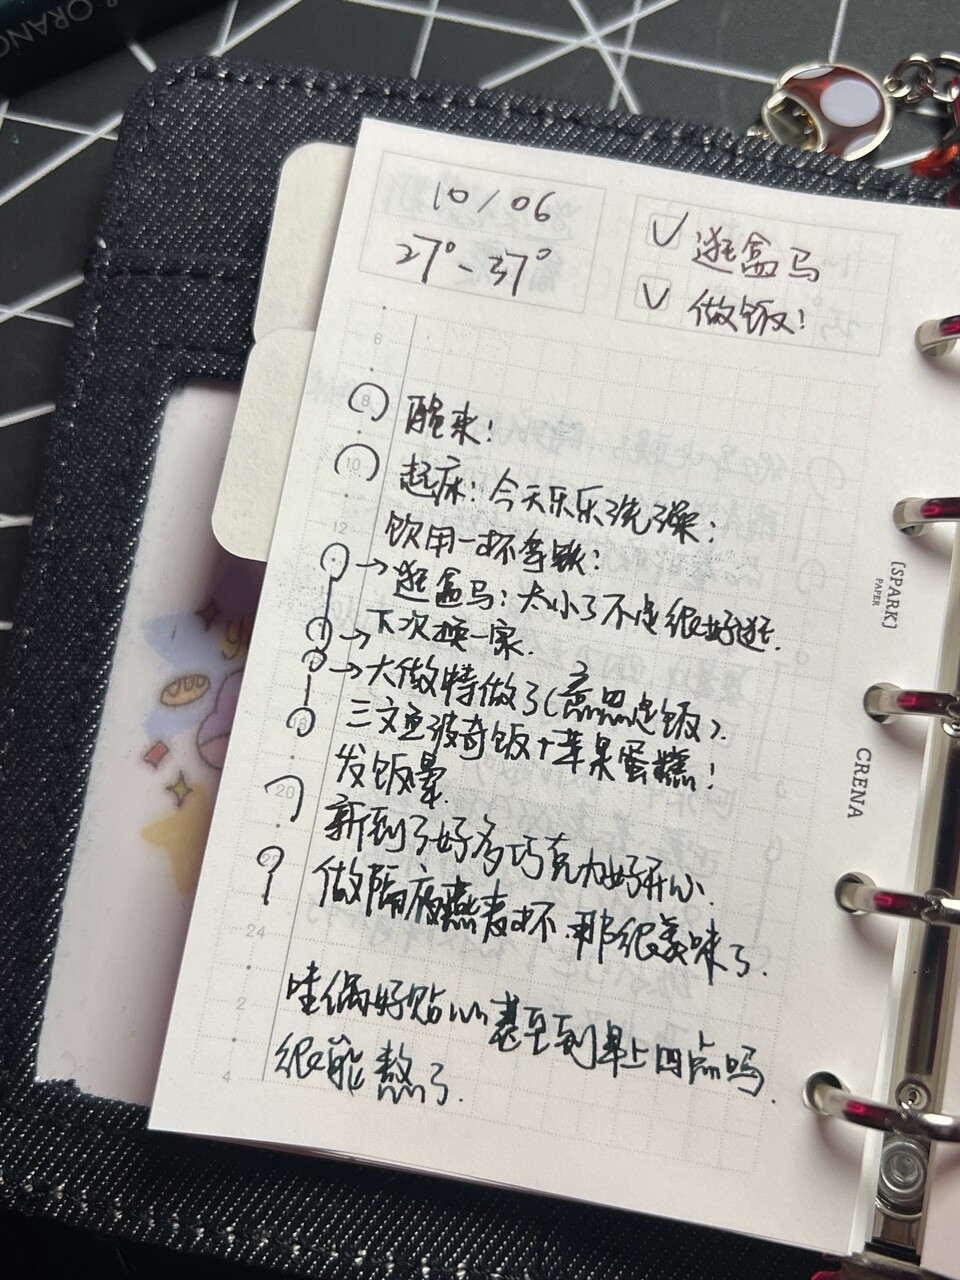 ORANG
10/06
27°-37°
✓ 逛盒马
✓ 做饭!
6
8 醒来!
10 起床:今天乐乐洗澡;
12 饮用一杯拿铁:
→逛盒马:太小了不是很好逛.
→下次换一家.
→大做特做了(意思是饭).
18 三文鱼波奇饭+苹果蛋糕!
发饭晕.
20 新到了好多巧克力好开心.
22 做隔夜燕麦杯.那很美味了.
24
2 哇偶好贴心甚至到早上四点吗
4 很能熬了.
[SPARK]
PAPER
CRENA